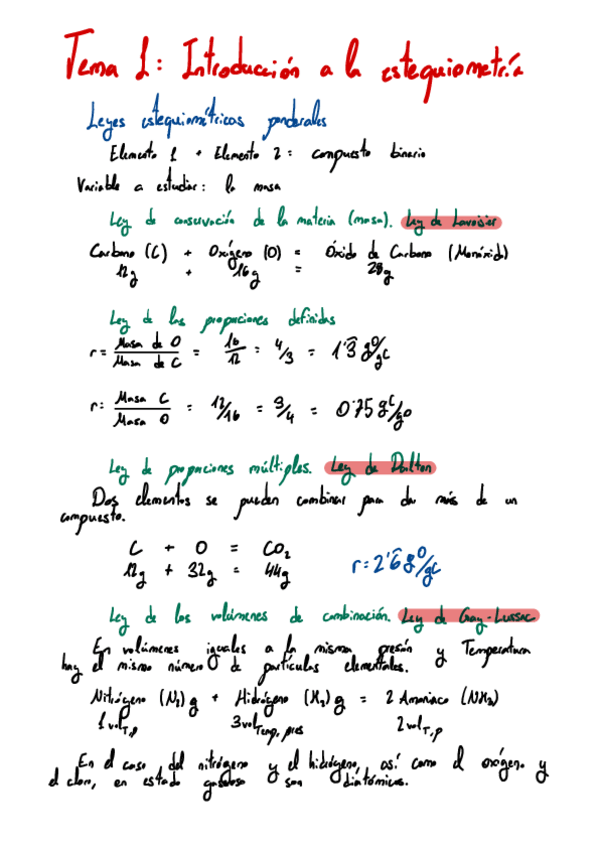 Tema 1: Introducción a la estequiometría
Leyes estequiométricas ponderales
Elemento 1 + Elemento 2 = compuesto binario
Variable a estudiar: la masa
Ley de conservación de la materia (masa). Ley de Lavoisier
Carbono (C) + Oxígeno (O) = Óxido de Carbono (Monóxido)
12g + 16g = 28g
Ley de las proporciones definidas
r = Masa de O / Masa de C = 16/12 = 4/3 = 1'3̂ gO/gC
r = Masa C / Masa O = 12/16 = 3/4 = 0'75 gC/gO
Ley de proporciones múltiples. Ley de Dalton
Dos elementos se pueden combinar para dar más de un
compuesto.
C + O = CO₂
12g + 32g = 44g r = 2'6̂ gO/gC
Ley de los volúmenes de combinación. Ley de Gay-Lussac
En volúmenes iguales a la misma presión y Temperatura
hay el mismo número de partículas elementales.
Nitrógeno (N₂) g + Hidrógeno (H₂) g = 2 Amoniaco (NH₃)
1 vol T,p 3 vol Temp, pres 2 vol T,p
En el caso del nitrógeno y el hidrógeno, así como el oxígeno y
el cloro, en estado gaseoso son diatómicos.